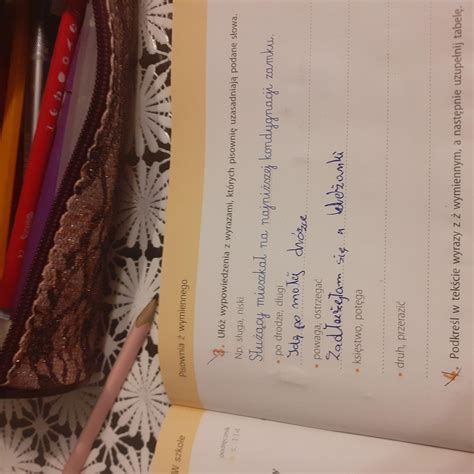 W szkole
Pisownia ż wymiennego
3. Ułóż wypowiedzenia z wyrazami, których pisownię uzasadniają podane słowa.
Np. sługa, niski
Służący mieszkał na najniższej kondygnacji zamku.
• po drodze, długi
Idę po małej dróżce
• powaga, ostrzegać
się u koleżanki
• księstwo, potęga
• druh, przerazić
4. Podkreśl w tekście wyrazy z ż wymiennym, a następnie uzupełnij tabelę.